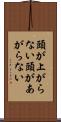 頭が上がら
ない頭があ
がらない